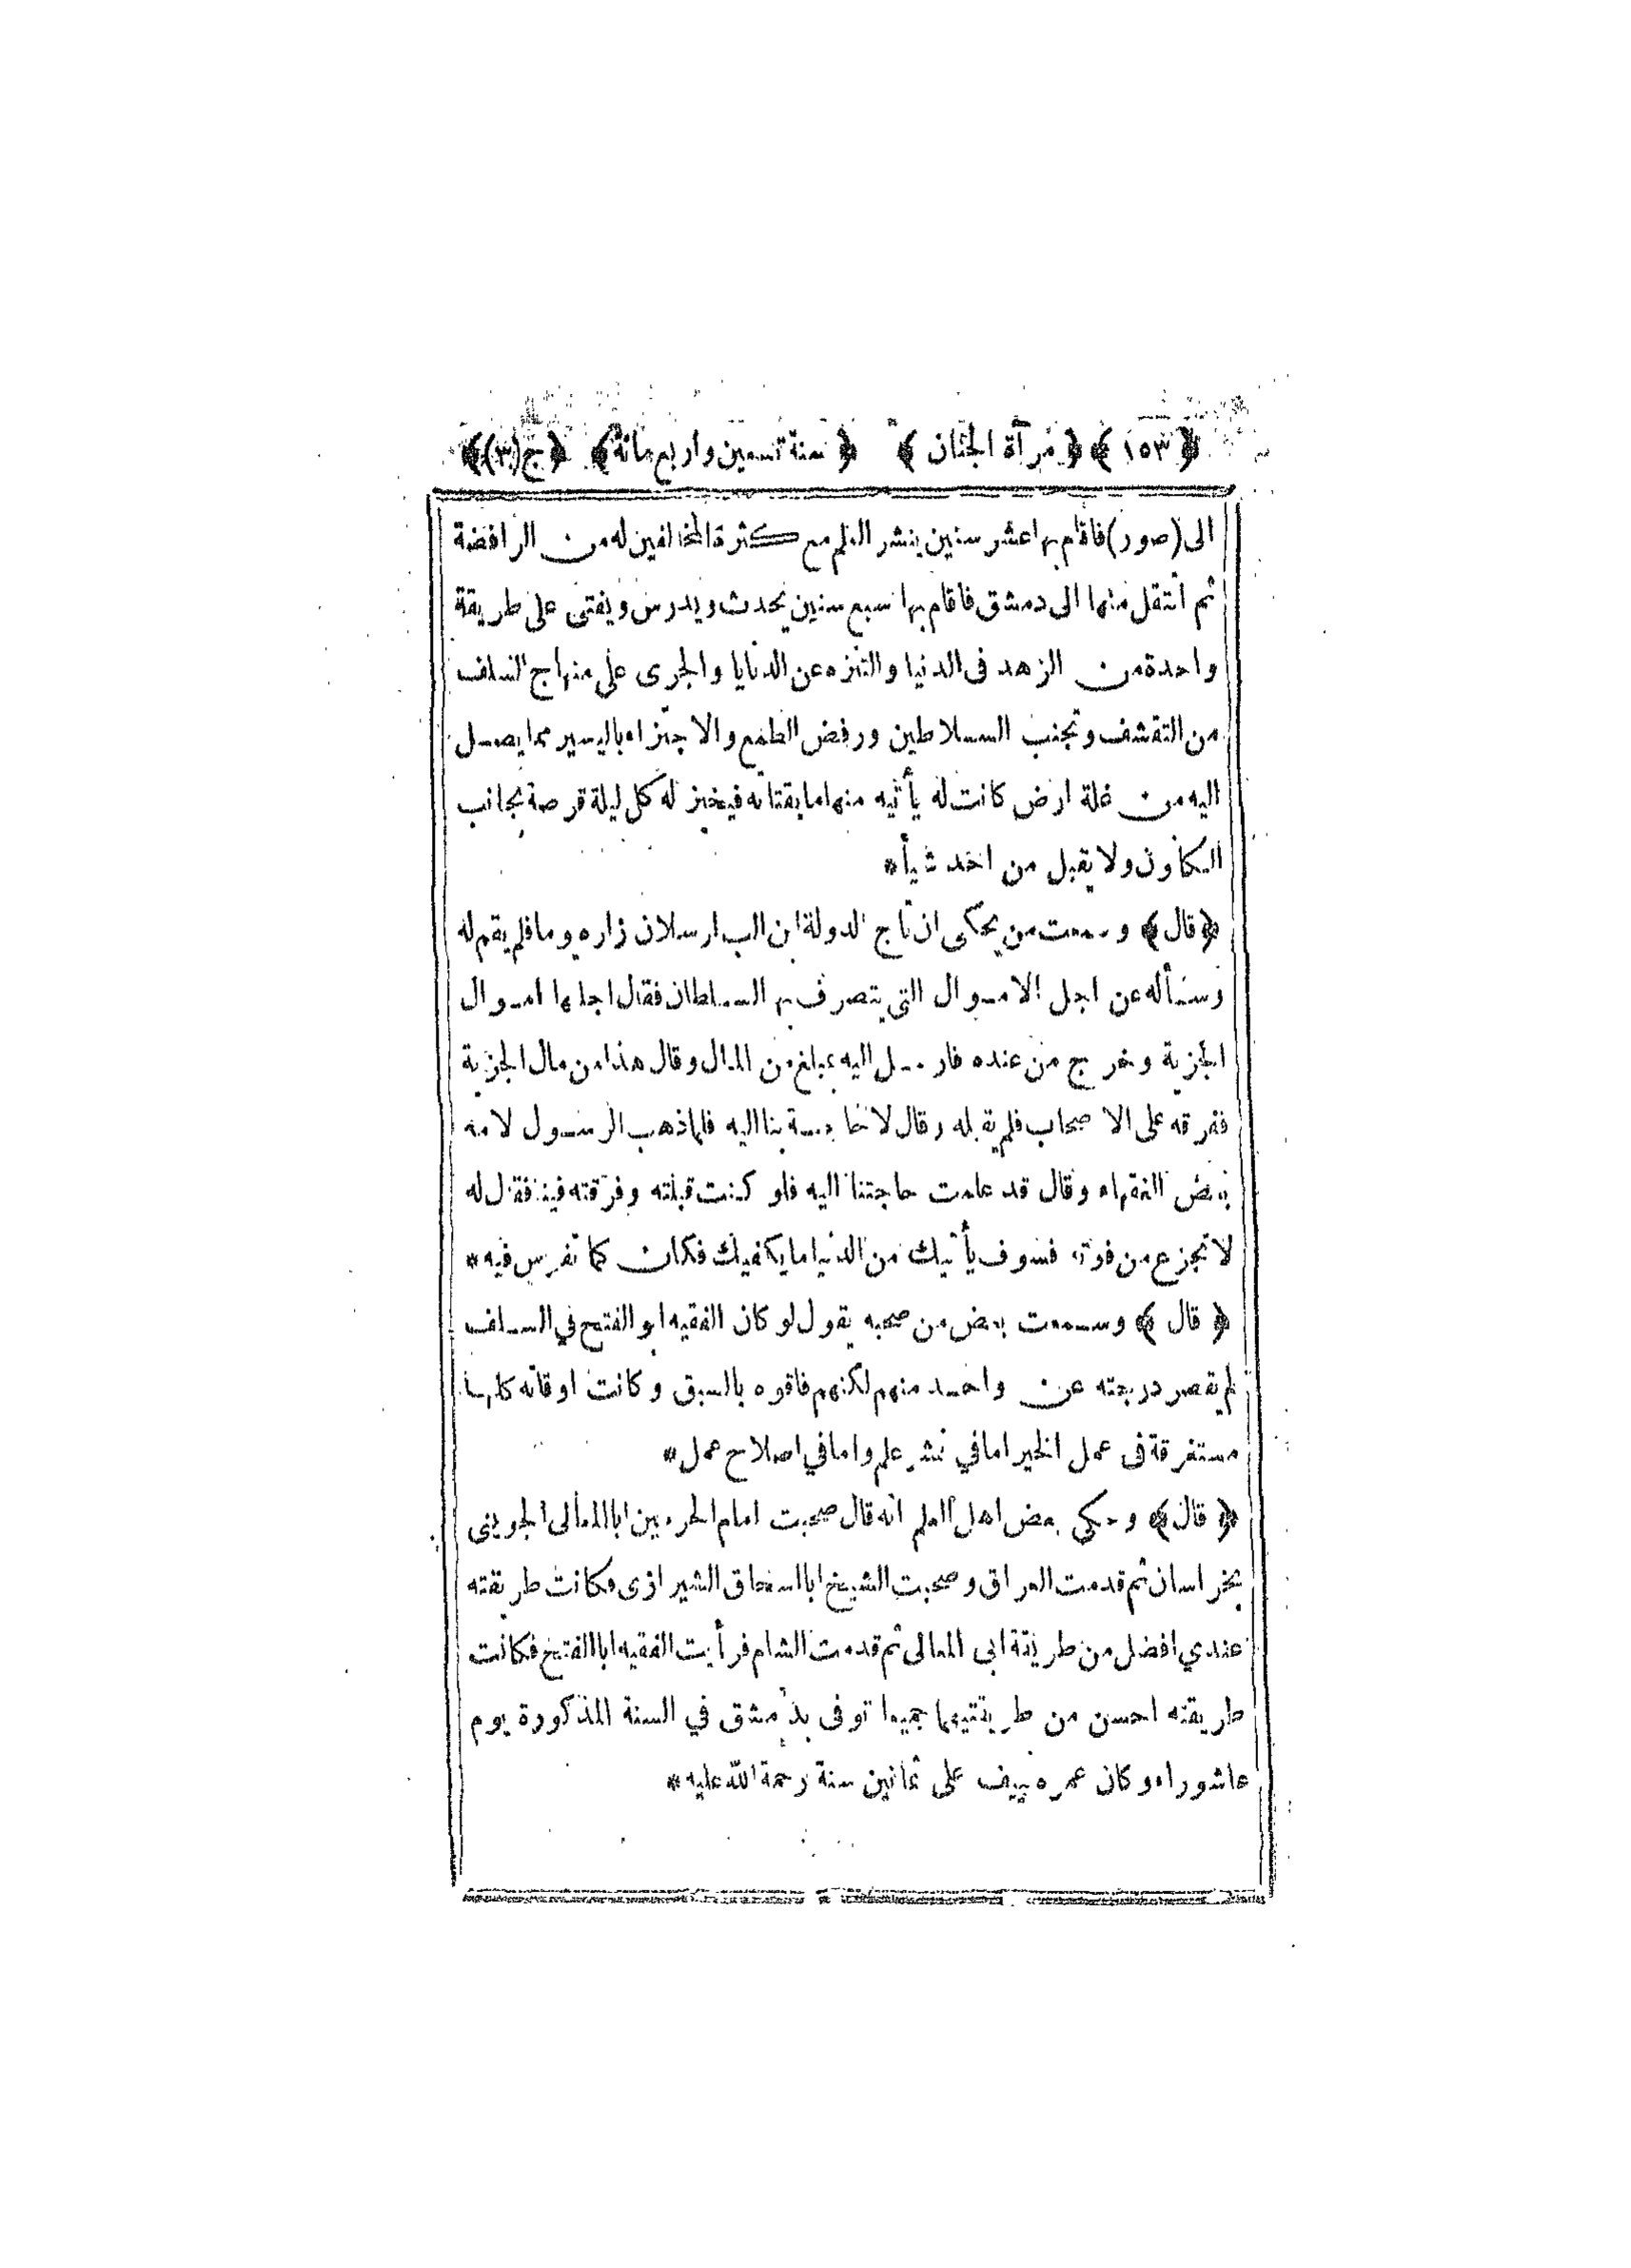 ﴿١٥٣﴾ ﴿مرآة الجنان﴾ ﴿سنة تسعين واربع مائة﴾ ﴿ج(٣)﴾
الى (صور) فاقام بها عشر سنين ينشر العلم مع كثرة المخالفين له من الرافضة
ثم انتقل منها الى دمشق فاقام بها سبع سنين يحدث ويدرس ويفتى على طريقة
واحدة من الزهد فى الدنيا والتنزه عن الدنايا والجرى على منهاج السلف
من التقشف وتجنب السلاطين ورفض الطمع والاجتزاء باليسير مما يصل
اليه من غلة ارض كانت له يأتيه منها ما يقتاته فيخبز له كل ليلة قرصة بجانب
الكانون ولا يقبل من احد شيأ*
﴿قال﴾ وسمعت من يحكى ان تاج الدولة ابن الب ارسلان زاره يوما فلم يقم له
وسأله عن احل الاموال التى يتصرف بها السلطان فقال احلها اموال
الجزية وخرج من عنده فارسل اليه بمبلغ من المال وقال هذا من مال الجزية
ففرقه على الاصحاب فلم يقبله وقال لا حاجة بنا اليه فلما ذهب الرسول لامه
بعض الفقهاء وقال قد علمت حاجتنا اليه فلو كنت قبلته وفرقته فينا فقال له
لا تجزع من فوته فسوف يأتيك من الدنيا ما يكفيك فكان كما تفرس فيه*
﴿قال﴾ وسمعت بعض من صحبه يقول لو كان الفقيه ابو الفتح في السلف
لم يقصر درجته عن واحد منهم لكنهم فاقوه بالسبق وكانت اوقاته كلها
مستغرقة فى عمل الخير اما في نشر علم واما في اصلاح عمل*
﴿قال﴾ وحكى بعض اهل العلم انه قال صحبت امام الحرمين ابا المعالى الجوينى
بخراسان ثم قدمت العراق وصحبت الشيخ ابا اسحاق الشيرازى فكانت طريقته
عندي افضل من طريقة ابى المعالى ثم قدمت الشام فرأيت الفقيه ابا الفتح فكانت
طريقته احسن من طريقتيهما جميعا توفى بدمشق في السنة المذكورة يوم
عاشوراء وكان عمره ينيف على ثمانين سنة رحمة الله عليه*